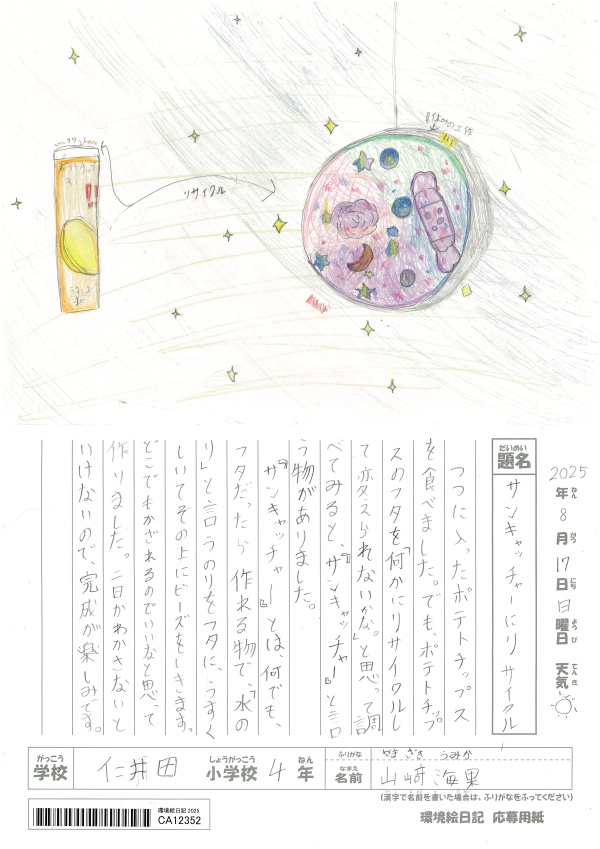 フタ
リサイクル
夏休みの工作
2025年8月17日日曜日 天気
ねん
がつ
にち
ようび
てんき
だいめい
題名
サンキャッチャーにリサイクル
つつに入ったポテトチップス
を食べました。でも、ポテトチップ
スのフタを「何かにリサイクルし
て変えられないかな。」と思って調
べてみると、『サンキャッチャー』と言
う物がありました。
『サンキャッチャー』とは、何でも、
フタだったら作れる物で、「水の
り」と言うのりをフタに、うすく
しいてその上にビーズをしきます。
どこでもかざれるのでいいなと思って
作りました。二日かわかさないと
いけないので、完成が楽しみです。
がっこう
学校
仁井田
しょうがっこう
小学校
4
ねん
年
ふりがな
やまざき うみか
なまえ
名前
山崎 海果
(漢字で名前を書いた場合は、ふりがなをふってください)
環境絵日記 2025
CA12352
環境絵日記 応募用紙